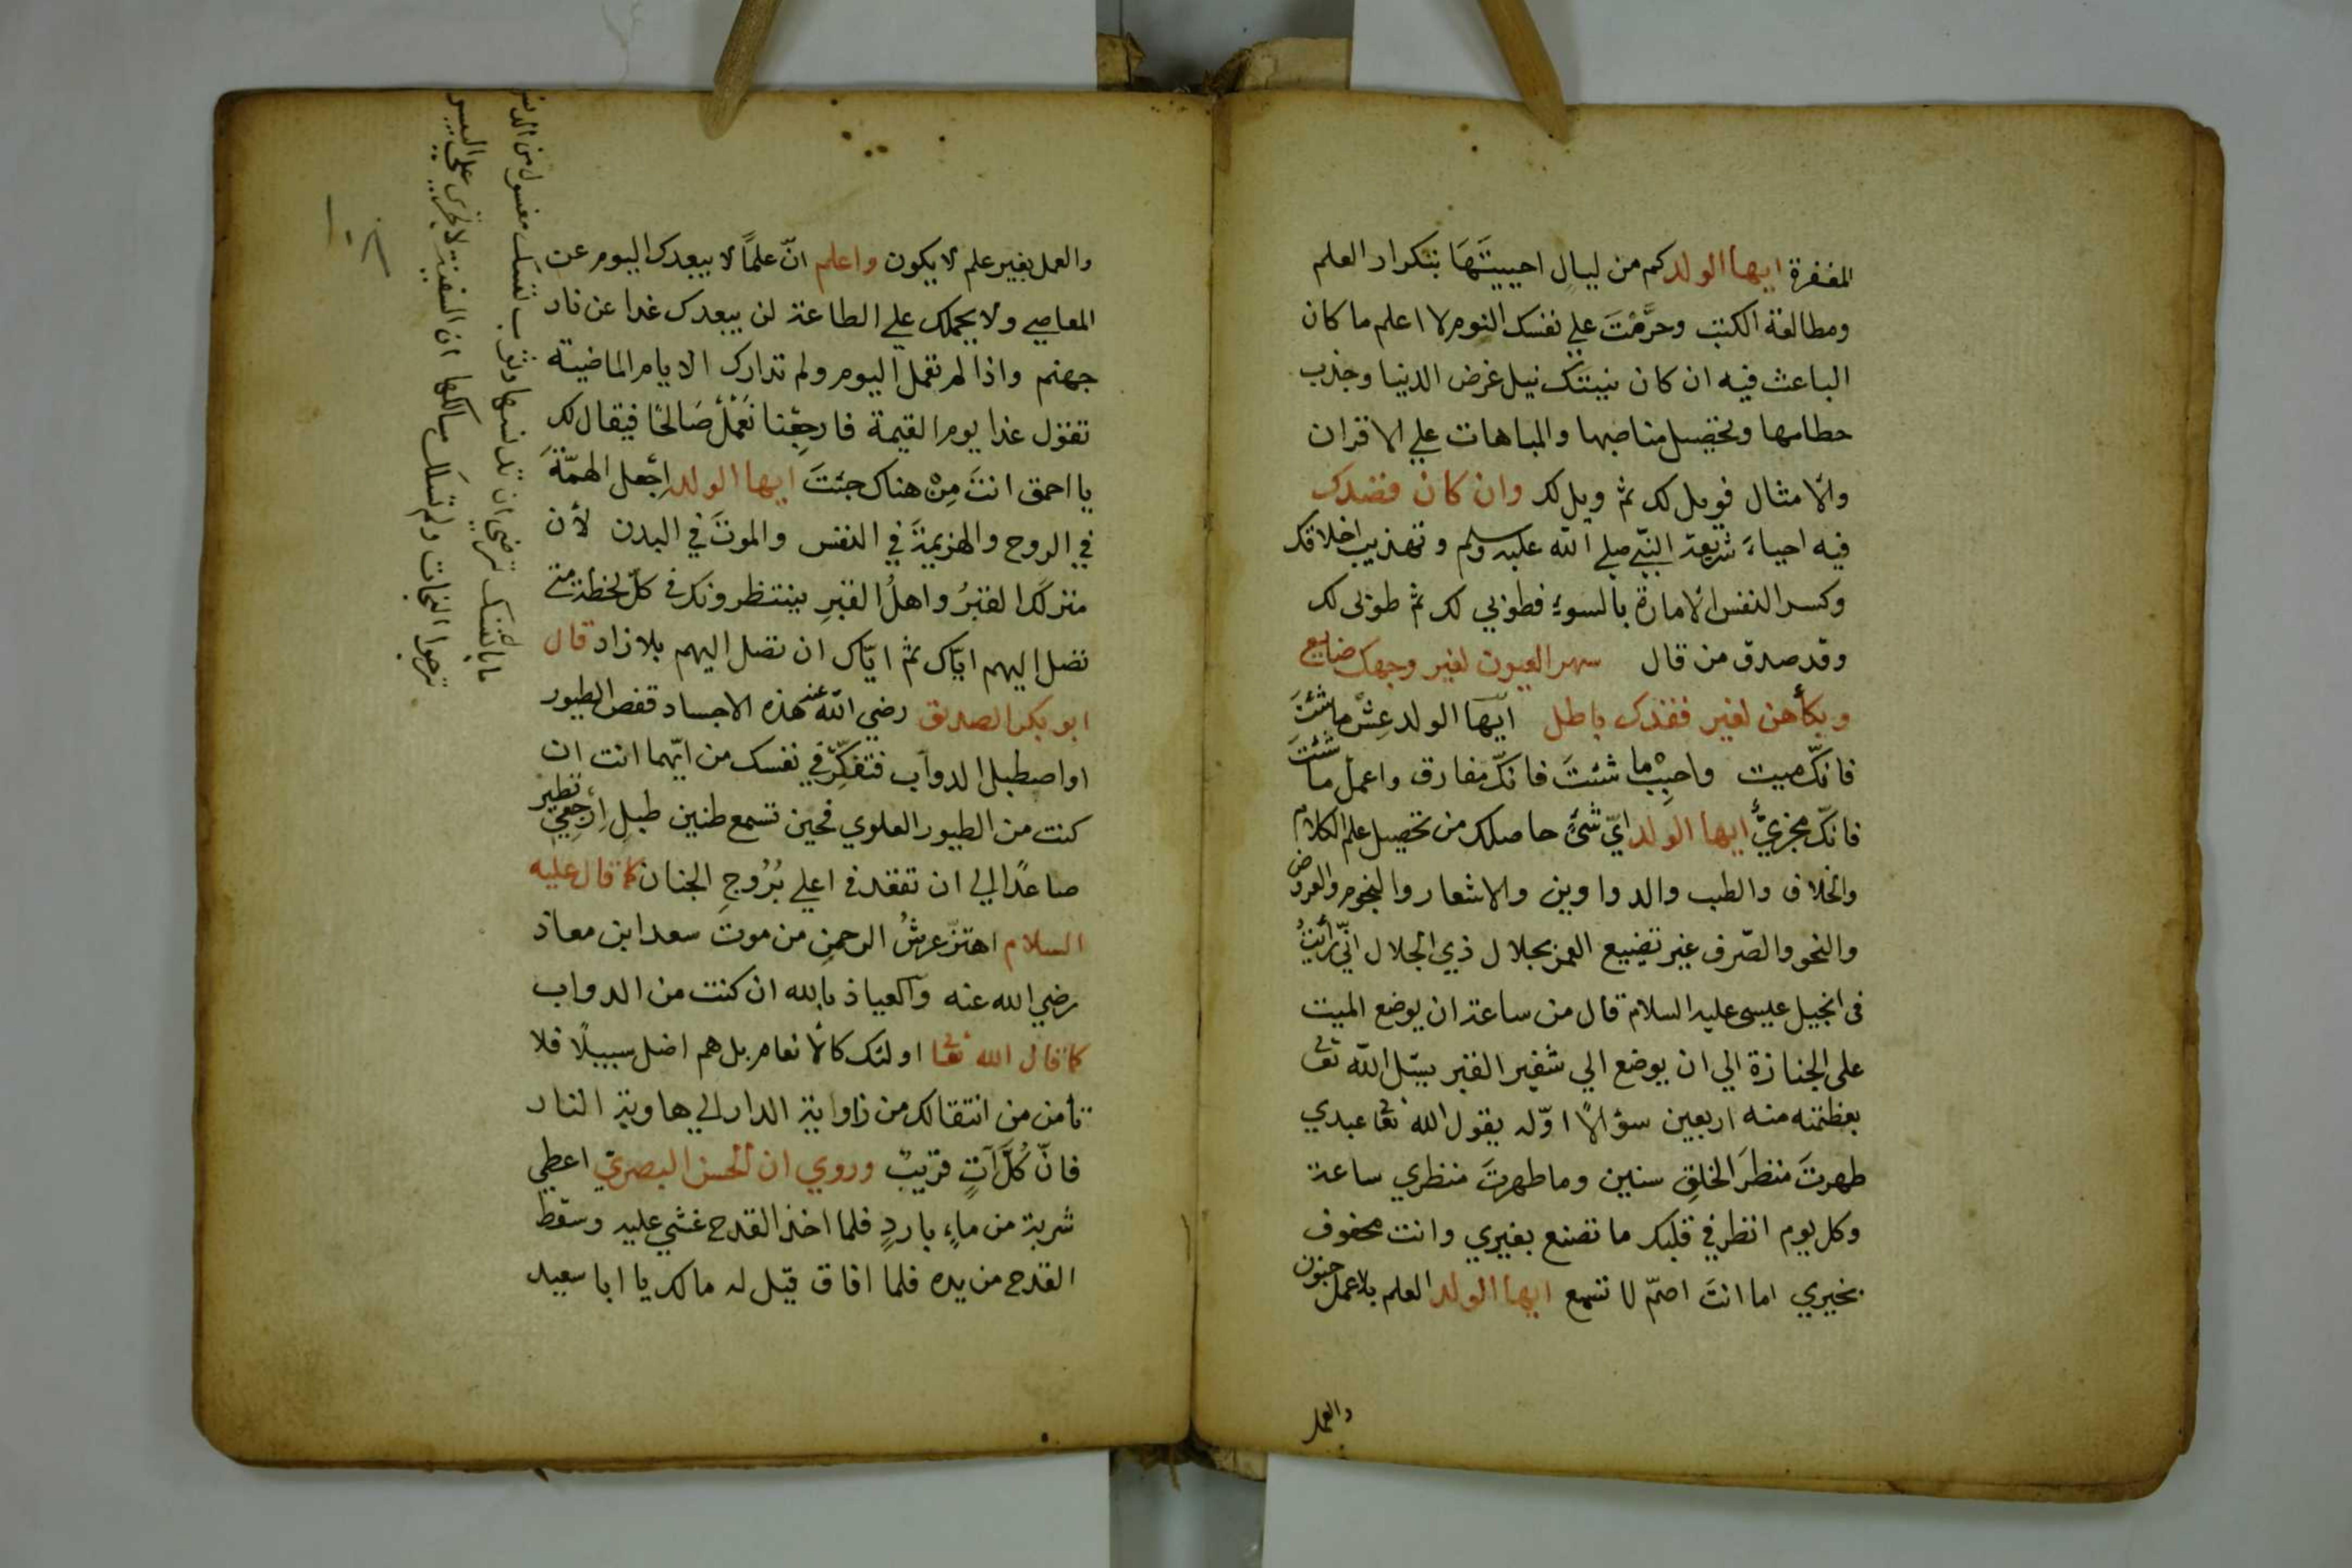 المغفرة ايها الولد كم من ليالٍ احييتَهَا بتكرار العلم
ومطالعة الكتب وحرَّمْتَ علي نفسك النوم لا اعلم ما كان
الباعث فيه ان كان نيتَك نيل غرض الدنيا وجذب
حطامها وتحصيل مناصبها والمباهات علي الاقران
والامثال فويل لك ثم ويل لك وان كان قصدك
فيه احياءَ شريعة النبيّ صلي الله عليه وسلم وتهذيب اخلاقك
وكسر النفس الامارة بالسوء فطوبي لك ثم طوبى لك
وقد صدق من قال سهر العيون لغير وجهك ضايع
وبكاهن لغير فقدك باطل ايّها الولد عِشْ ما شئتَ
فانكّ ميت واحبِبْ ما شئتَ فانكّ مفارق واعمل ما شئتَ
فانكّ مجزيٌّ ايها الولد ايّ شئ حاصلك من تحصيل علم الكلام
والخلاف والطب والدواوين والاشعار والنجوم والعروض
والنحو والصّرف غير تضييع العمر بجلال ذي الجلال انّي رأيتُ
فى انجيل عيسى عليه السلام قال من ساعة ان يوضع الميت
على الجنازة الي ان يوضع الي شفير القبر يسئل الله تعا
بعظمته منه اربعين سؤالاً اوّله يقول الله تعا عبدي
طهرتَ منظرَ الخلقِ سنين وما طهرتَ منظري ساعة
وكل يوم انظر في قلبك ما تصنع بغيري وانت محفوف
بخيري اما انتَ اصمّ لا تسمع ايها الولد العلم بلا عمل جنون
والعمل
والعمل بغير علم لا يكون واعلم انّ علمًا لا يبعدك اليوم عن
المعاصي ولا يحملك علي الطاعة لن يبعدك غدا عن نار
جهنم واذا لم تعمل اليوم ولم تدارك الايام الماضية
تقول غدا يوم القيمة فارجِعْنا نَعْمَلْ صَالحًا فيقال لك
يا احمق انتَ مِنْ هناك جئتَ ايها الولد اِجْعل الهمّةَ
في الروح والهزيمةَ في النفس والموتَ في البدن لأن
منزلَك القبرُ واهلُ القبرِ ينتظرونك في كلّ لحظة متى
تصل اليهم ايّاك ثم ايّاك ان تصل اليهم بلا زاد قال
ابو بكر الصديق رضي الله عنه هذه الاجساد قفص الطيور
او اصطبل الدوآب فتفكّرْ في نفسك من ايّهما انت ان
كنت من الطيور العلوي فحين تسمع طنين طبلِ اِرْجِعِي تطير
صاعدًا الي ان تقعد في اعلي بُرُوجِ الجنان كما قال عليه
السلام اهتزّ عرشُ الرحمنِ من موت سعد ابن معاذ
رضي الله عنه والعياذ بالله ان كنت من الدواب
كما قال الله تعا اولئك كالأنعام بل هم اضل سبيلًا فلا
تأمن من انتقالك من زاواية الدار الي هاوية النار
فانّ كُلَّ آتٍ قريبٌ وروي ان الحسن البصريّ اعطي
شربة من ماءٍ باردٍ فلما اخذ القدح غشي عليه وسقط
القدح من يده فلما افاق قيل له مالك يا ابا سعيد
ما بال نفسك ترضى ان تدنسها وثوب نفسك مغسول من الدنس
ترجوا النجات ولم تسلك مسالكها ان السفينة لا تجرى على اليبس